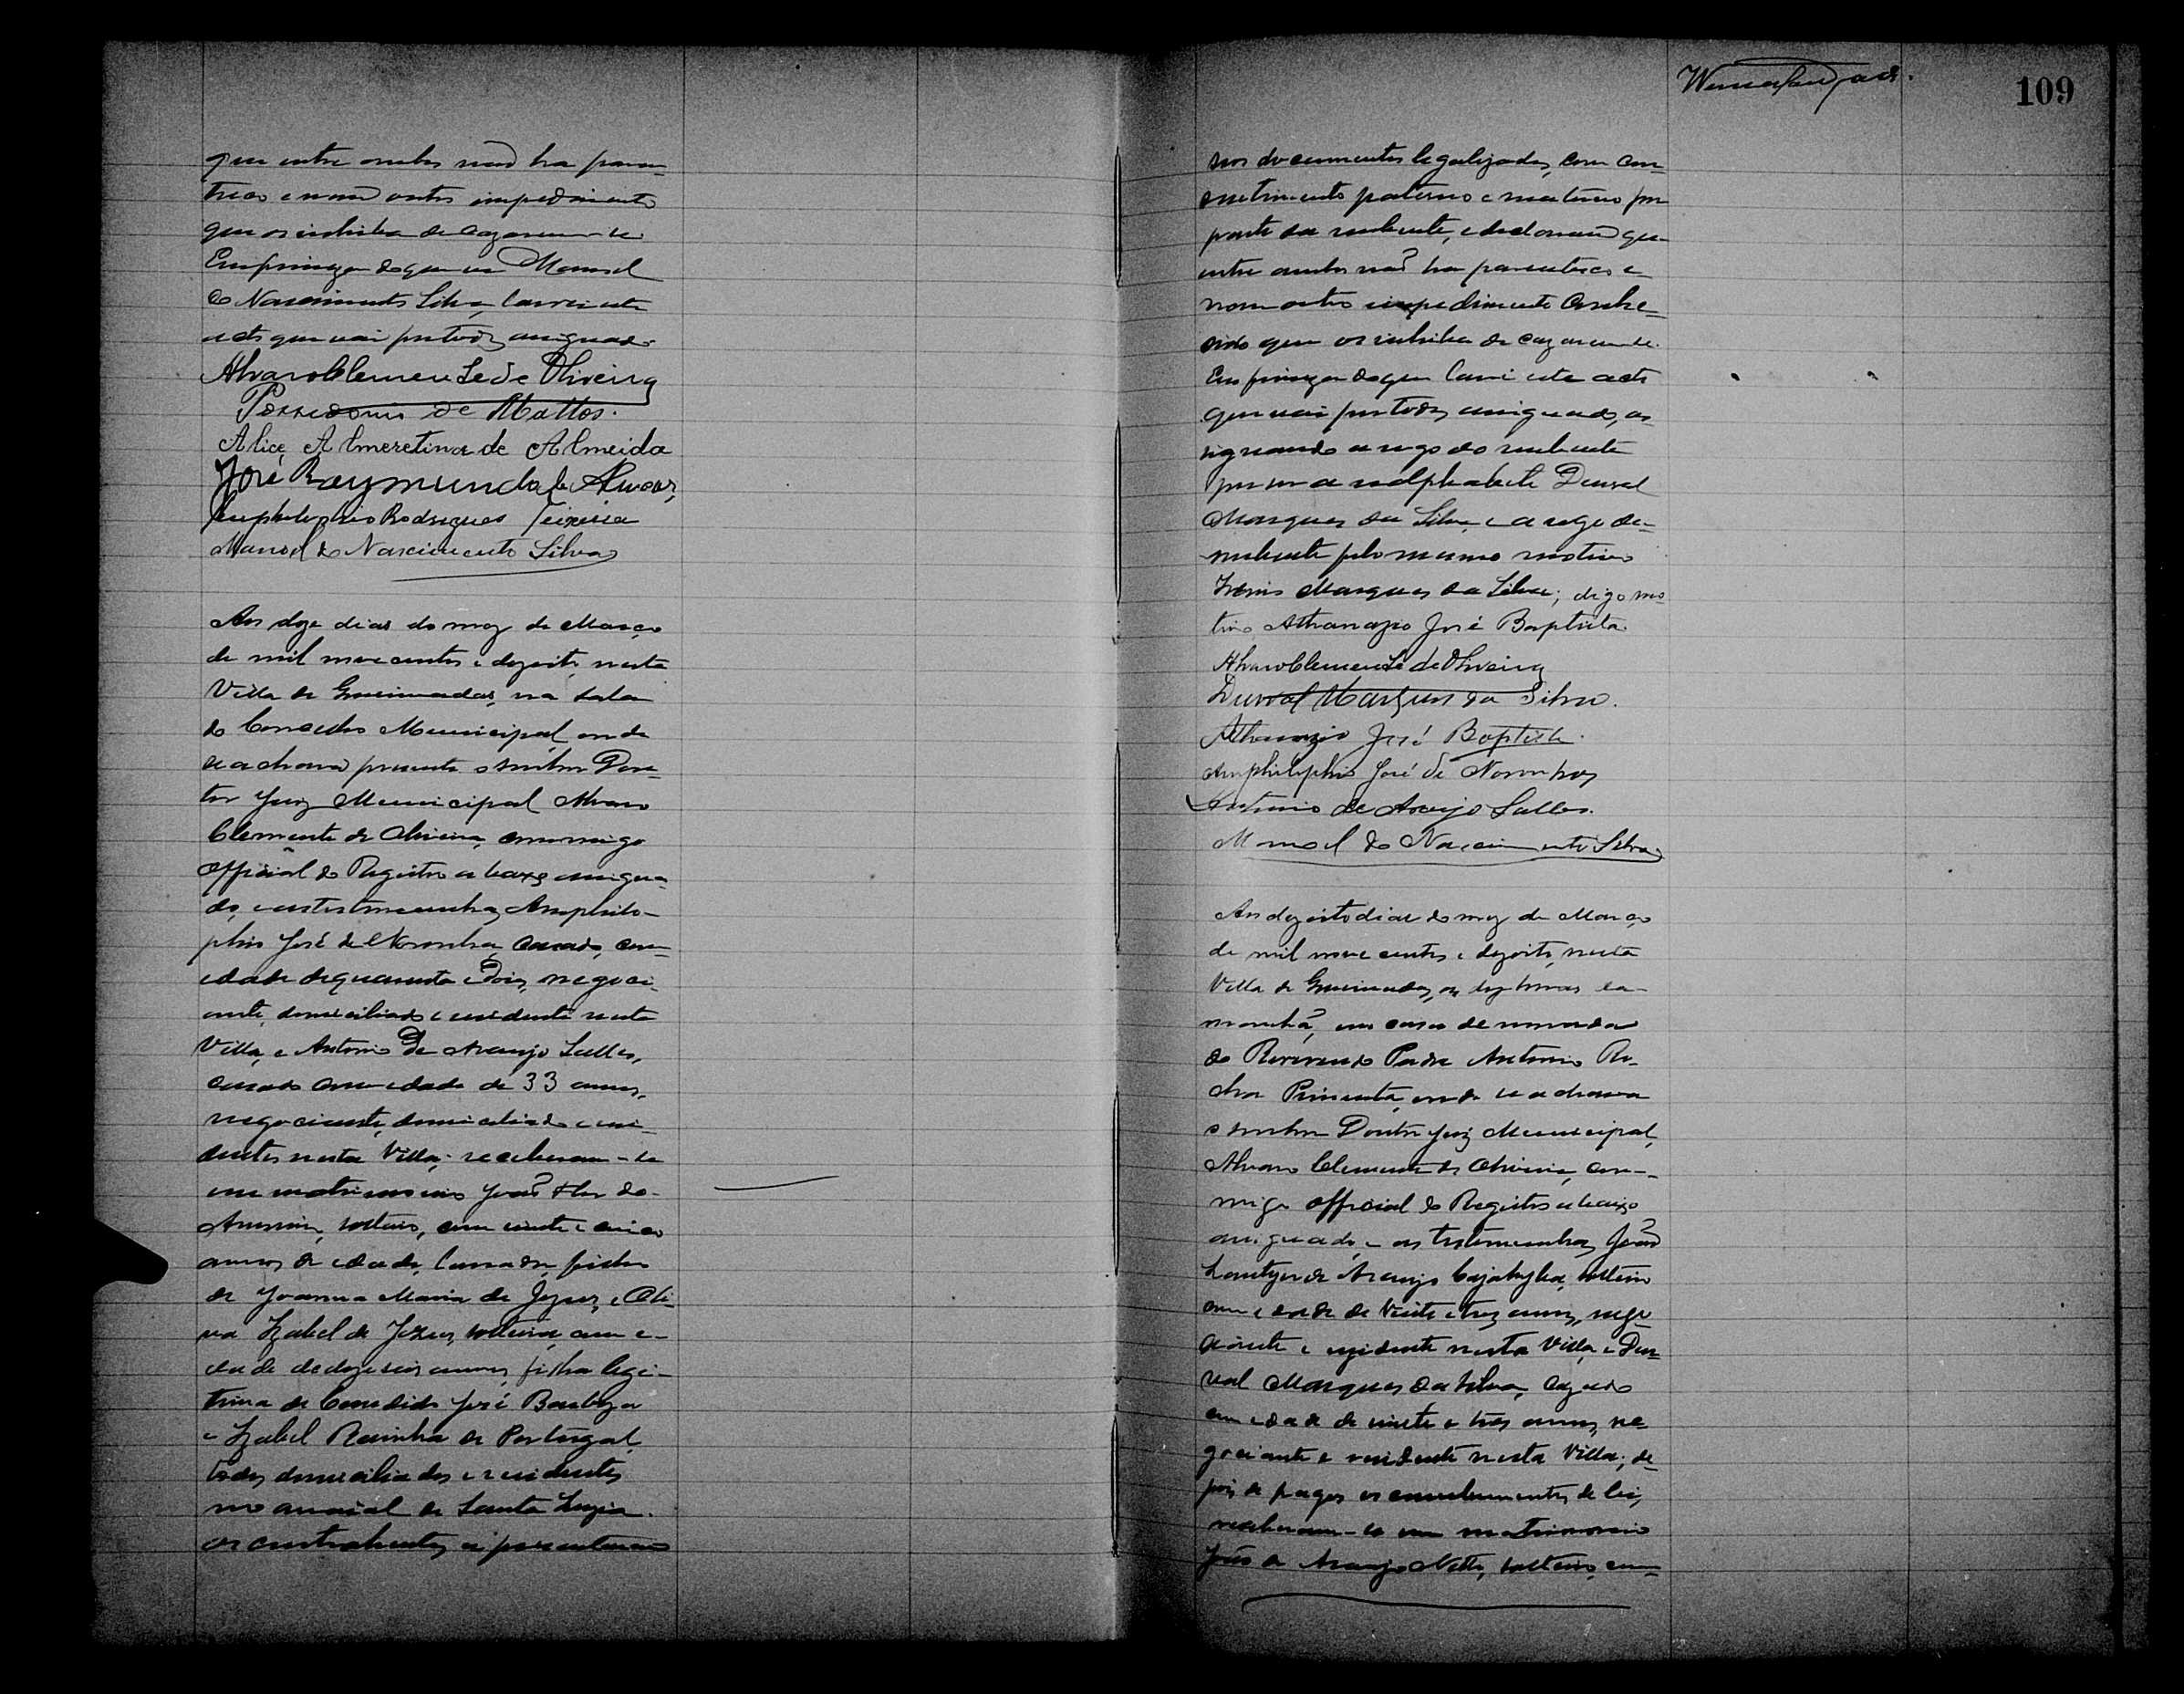 que entre ambos não ha paren-
tesco e nem outro impedimento
que os inhiba de cazarem-se.
Em firmeza do que eu Manoel
do Nascimento Silva, lavrei este
acto que vai por todos assignado.
Alvaro Clemente de Oliveira
Possidonio de Mattos.
Alice Almeretina de Almeida
José Raymundo de
Amphilophio Rodrigues Teixeira
Manoel do Nascimento Silva
Aos doze dias do mez de Março
de mil nove centos e dezoito, nesta
Villa de Queimadas, na sala
do Conselho Municipal, onde
se achava presente o senhor Dou-
tor Juiz Municipal Alvaro
Clemente de Oliveira, commigo
official do Registro abaixo assigna-
do, e as testemunhas, Amphilo-
phio José de Noronha, casado, com
edade de quarenta e dois, negoci-
ante, domiciliado e residente nesta
Villa, e Antonio de Araujo Salles,
casado com edade de 33 annos,
negociante, domiciliado e resi-
dentes nesta Villa; receberam-se
em matrimonio João de
solteiro, com vinte e cinco
annos de edade, lavrador, filho
de Joanna Maria de Jezus, e Oli-
va Izabel de Jezus, solteira, com e-
dade de dezeseis annos, filha legi-
tima de Candido José Barboza
e Izabel Rainha de Portugal,
todos domiciliados e residentes
no arraial de Santa Luzia.
os contrahentes apresentarão
109
seus documentos legalizados, com con-
sentimento paterno e materno por
parte da nubente, e declararão que
entre ambos não ha parentesco e
nem outro impedimento conhe-
cido que os inhiba de cazarem-se.
Em firmeza do que lavrei este acto
que vai por todos assignado, as-
signando a rogo do nubente
por ser analphabeto Durval
Marques da Silva, e a rogo da
nubente pelo mesmo motivo
Marques da Silva; digo mo-
tivo Athanazio José Baptista
Alvaro Clemente de Oliveira
Durval Marques da Silva.
Athanazio José Baptista.
Amphilophio José de Noronha
Antonio de Araujo Salles.
Manoel do Nascimento Silva
Aos dezoito dias do mez de Março
de mil nove centos e dezoito, nesta
Villa de Queimadas, as dez horas da
manhã, em casa de morada
do Reverendo Padre Antonio Ro-
cha Pimenta, onde se achava
o senhor Doutor Juiz Municipal,
Alvaro Clemente de Oliveira, com-
migo official do Registro abaixo
assignado, e as testemunhas João
de Araujo solteiro
com edade de vinte e tres annos, nego-
ciante e rezidente nesta Villa, e Dur-
val Marques da Silva, cazado
com edade de vinte e tres annos, ne-
gociante e residente nesta Villa; de-
pois de pagos os emolumentos de lei,
receberam-se em matrimonio
João de Araujo Netto, solteiro, com